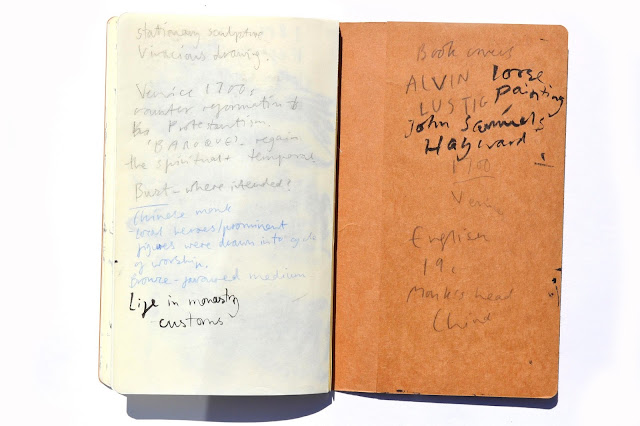 stationary sculpture
Vivacious drawing.
Venice 1700s
counter reformation to
Protestantism.
'BAROQUE' - regain
the spiritual + temporal
Bust - where intended?
Chinese monk
local heroes/prominent
figures were drawn into cycle
of worship.
Bronze - favoured medium
Life in monastry
customs
Book covers
ALVIN
LUSTIG
loose
painting
John Samuels
Hayward
1700
English
19c
Monks head
China